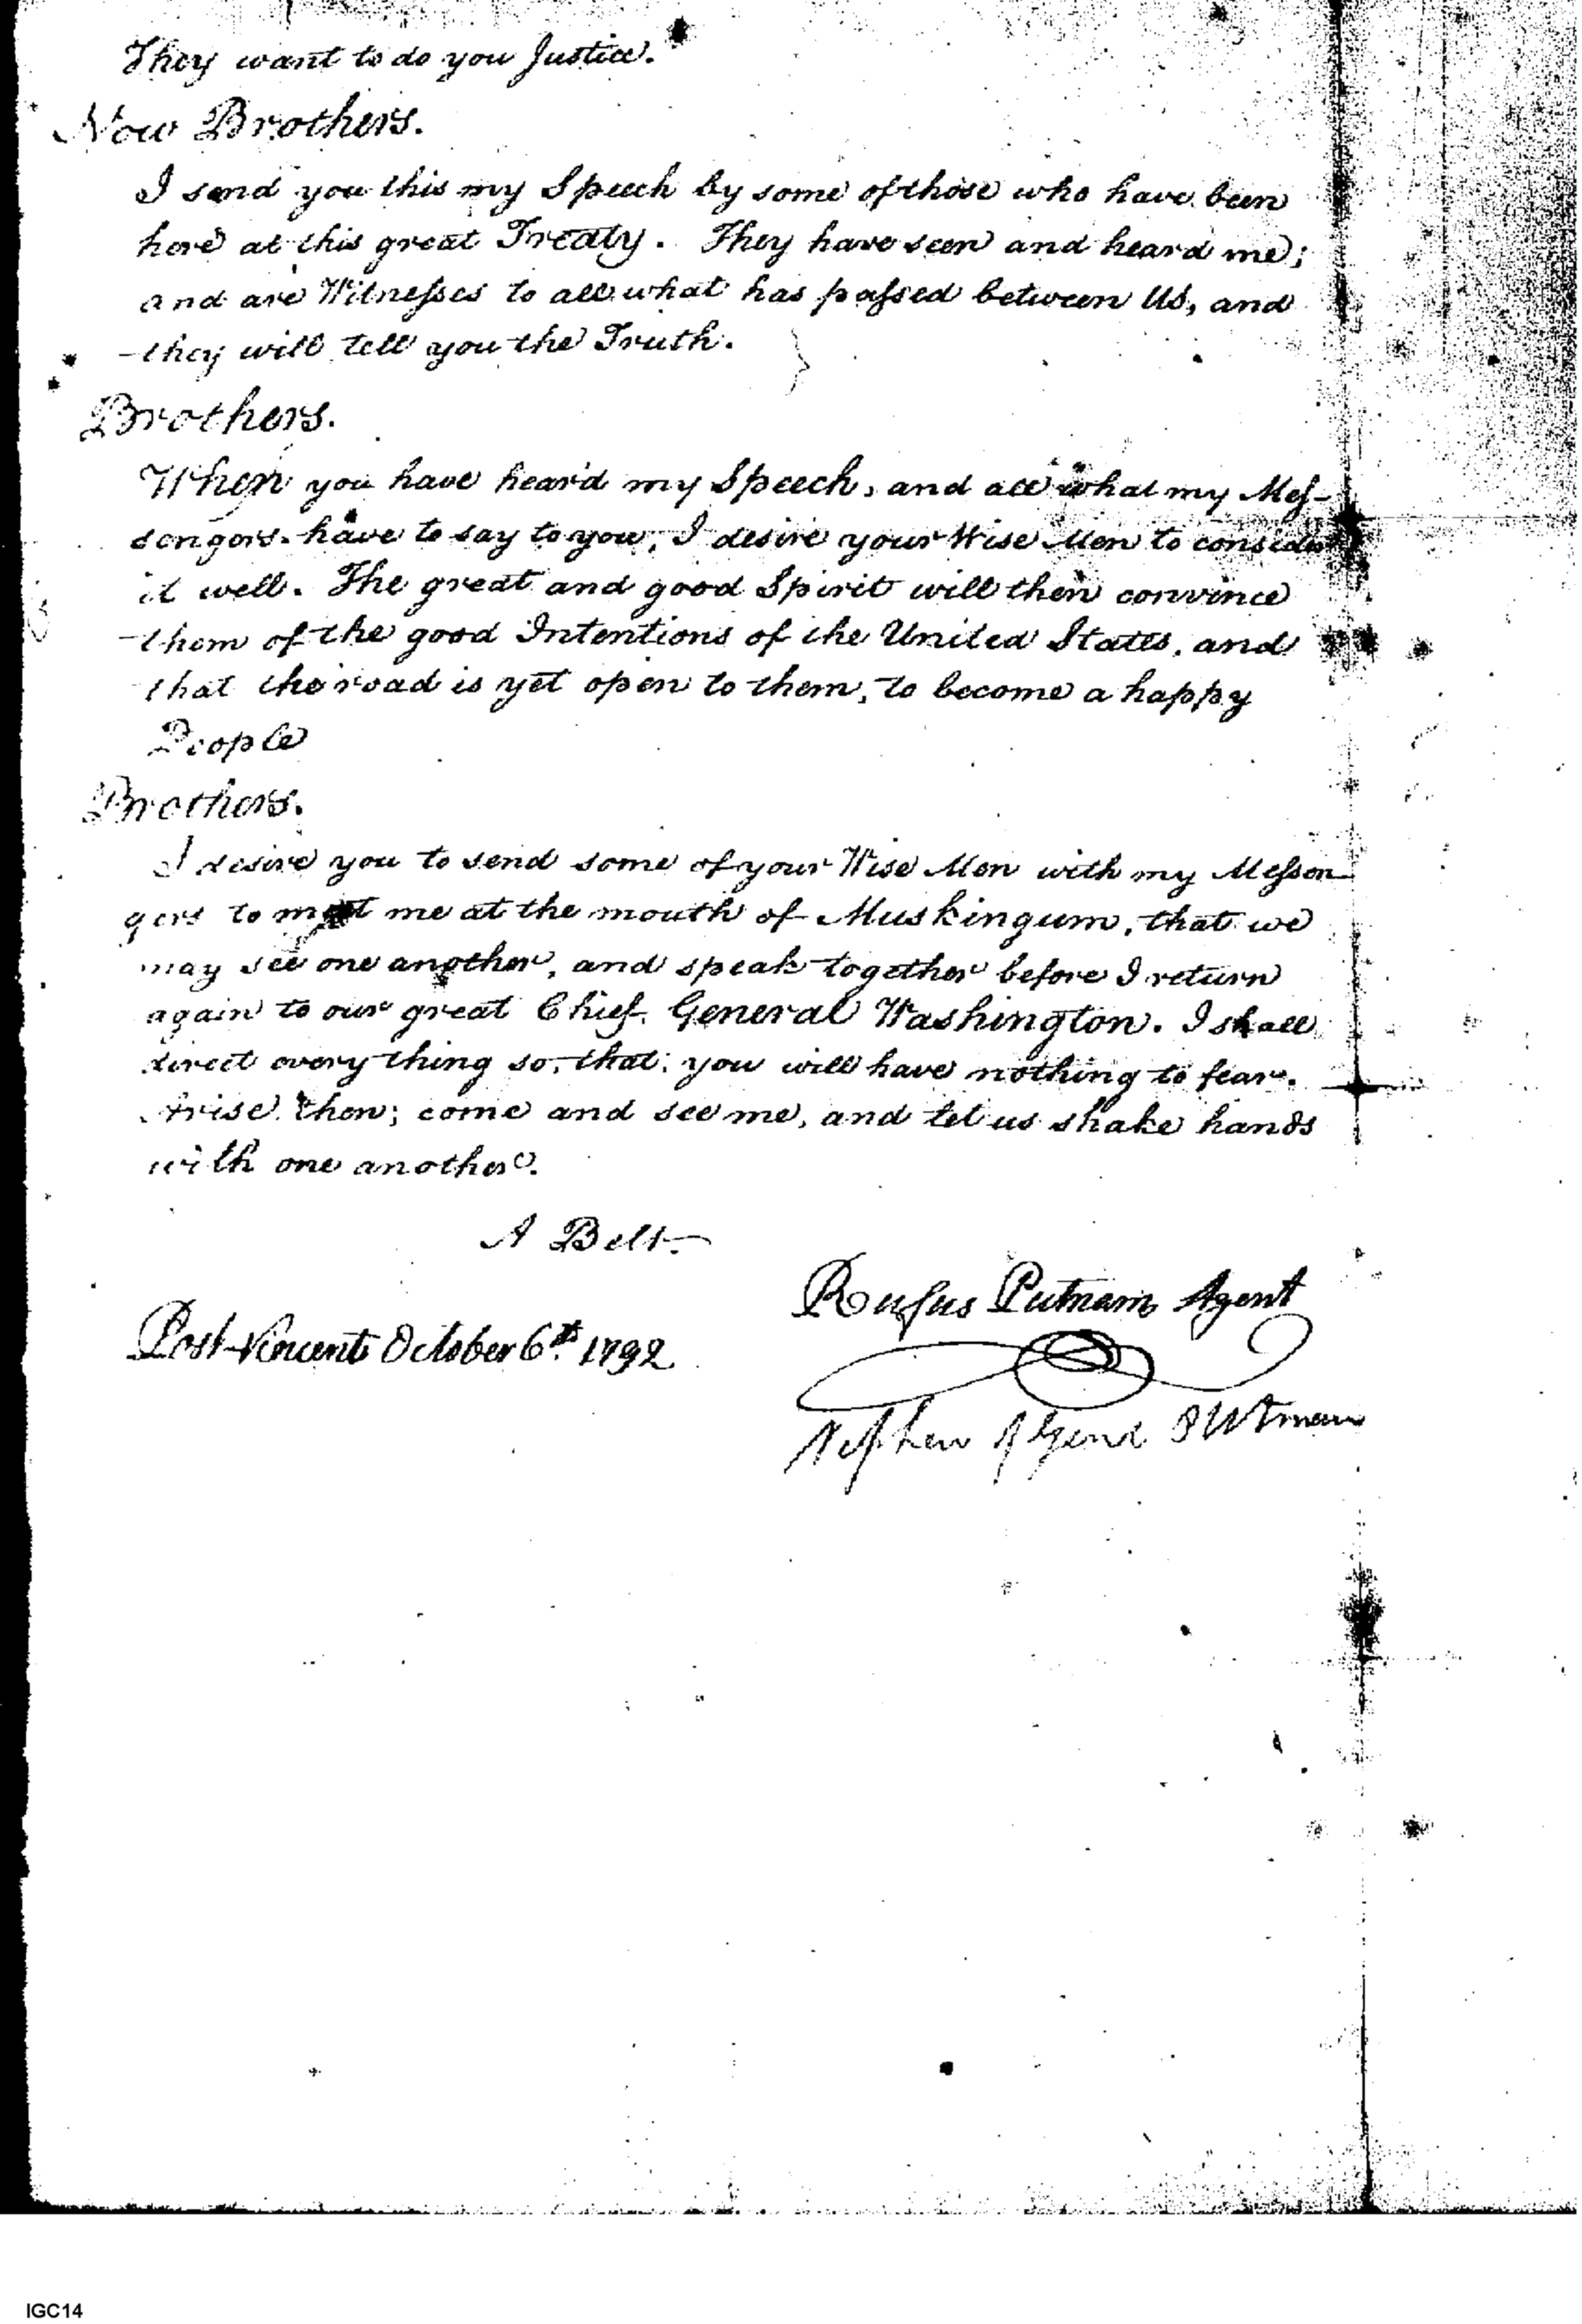 They want to do you Justice.
Now Brothers.
I send you this my Speech by some of those who have been
here at this great Treaty. They have seen and heard me;
and are Witnesses to all what has passed between Us, and
they will tell you the Truth.
Brothers.
When you have heard my Speech, and all what my Mes-
sengers have to say to you, I desire your Wise Men to consider
it well. The great and good Spirit will then convince
them of the good Intentions of the United States, and
that the road is yet open to them, to become a happy
People
Brothers.
I desire you to send some of your Wise Men with my Messen
gers to meet me at the mouth of Muskingum, that we
may see one another, and speak together before I return
again to our great Chief, General Washington. I shall
direct every thing so, that you will have nothing to fear.
Arise then; come and see me, and let us shake hands
with one another.
A Belt
Rufus Putnam Agent
Post Vincent October 6th. 1792
IGC14